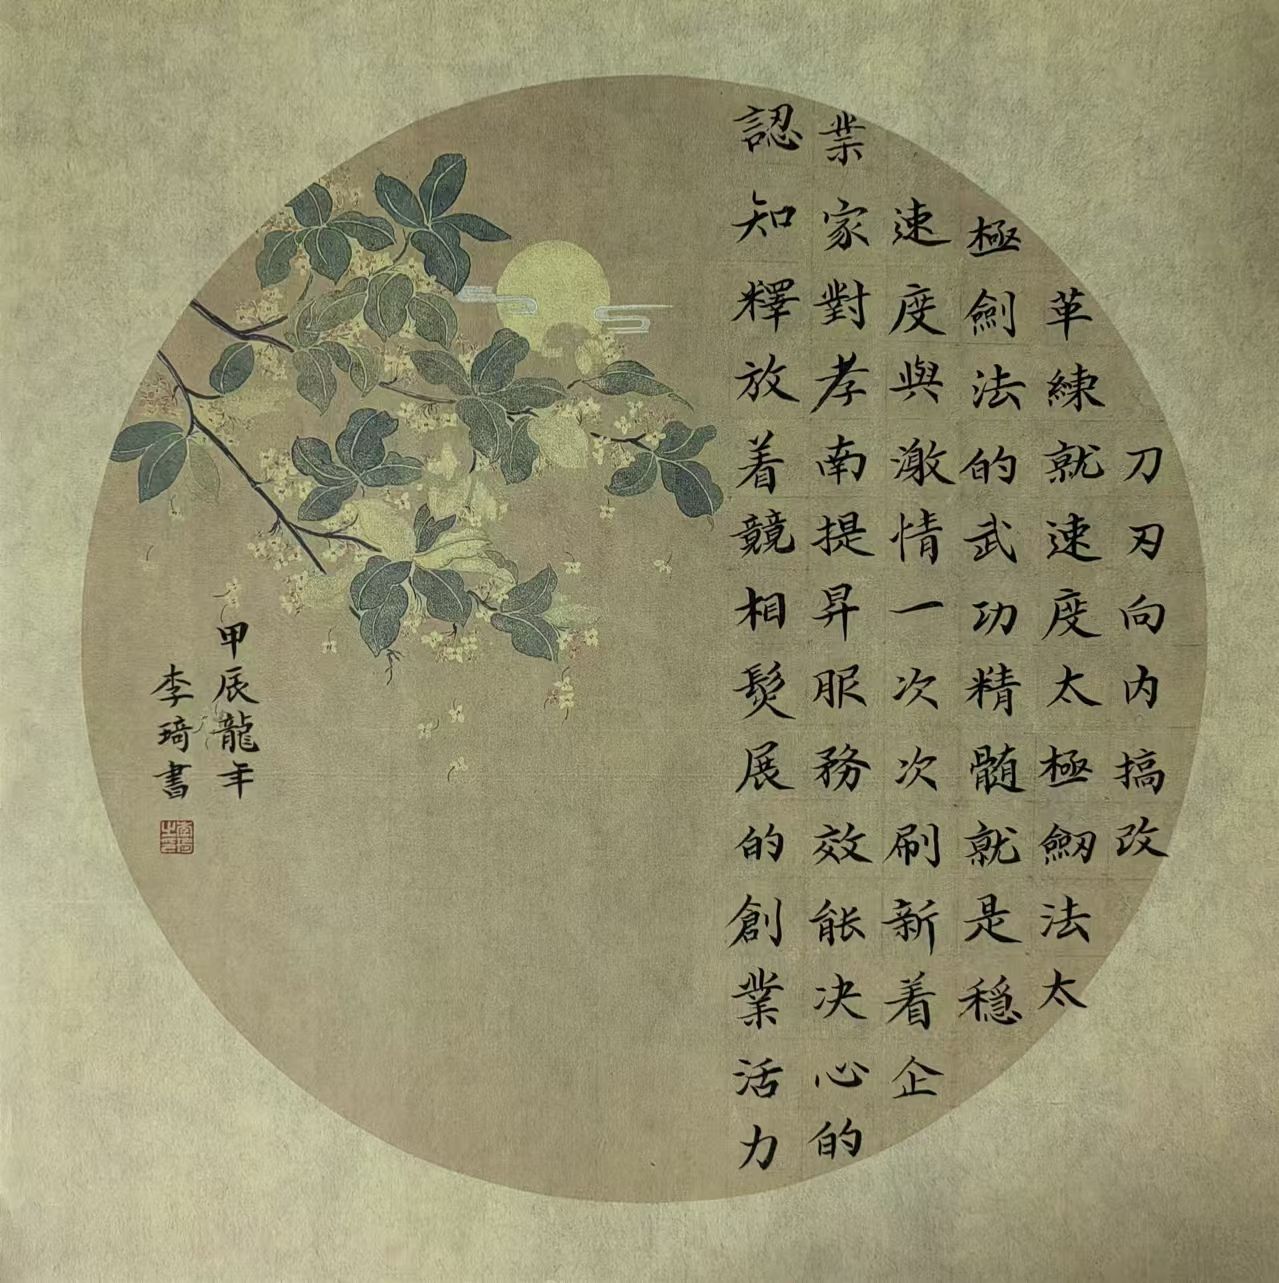 刀刃向内搞改
革練就速度太極劔法太
極劍法的武功精髄就是穏
速度與激情一次次刷新着企
業家對孝南提昇服務效能决心的
認知釋放着競相髮展的創業活力
甲辰龍年
李琦書